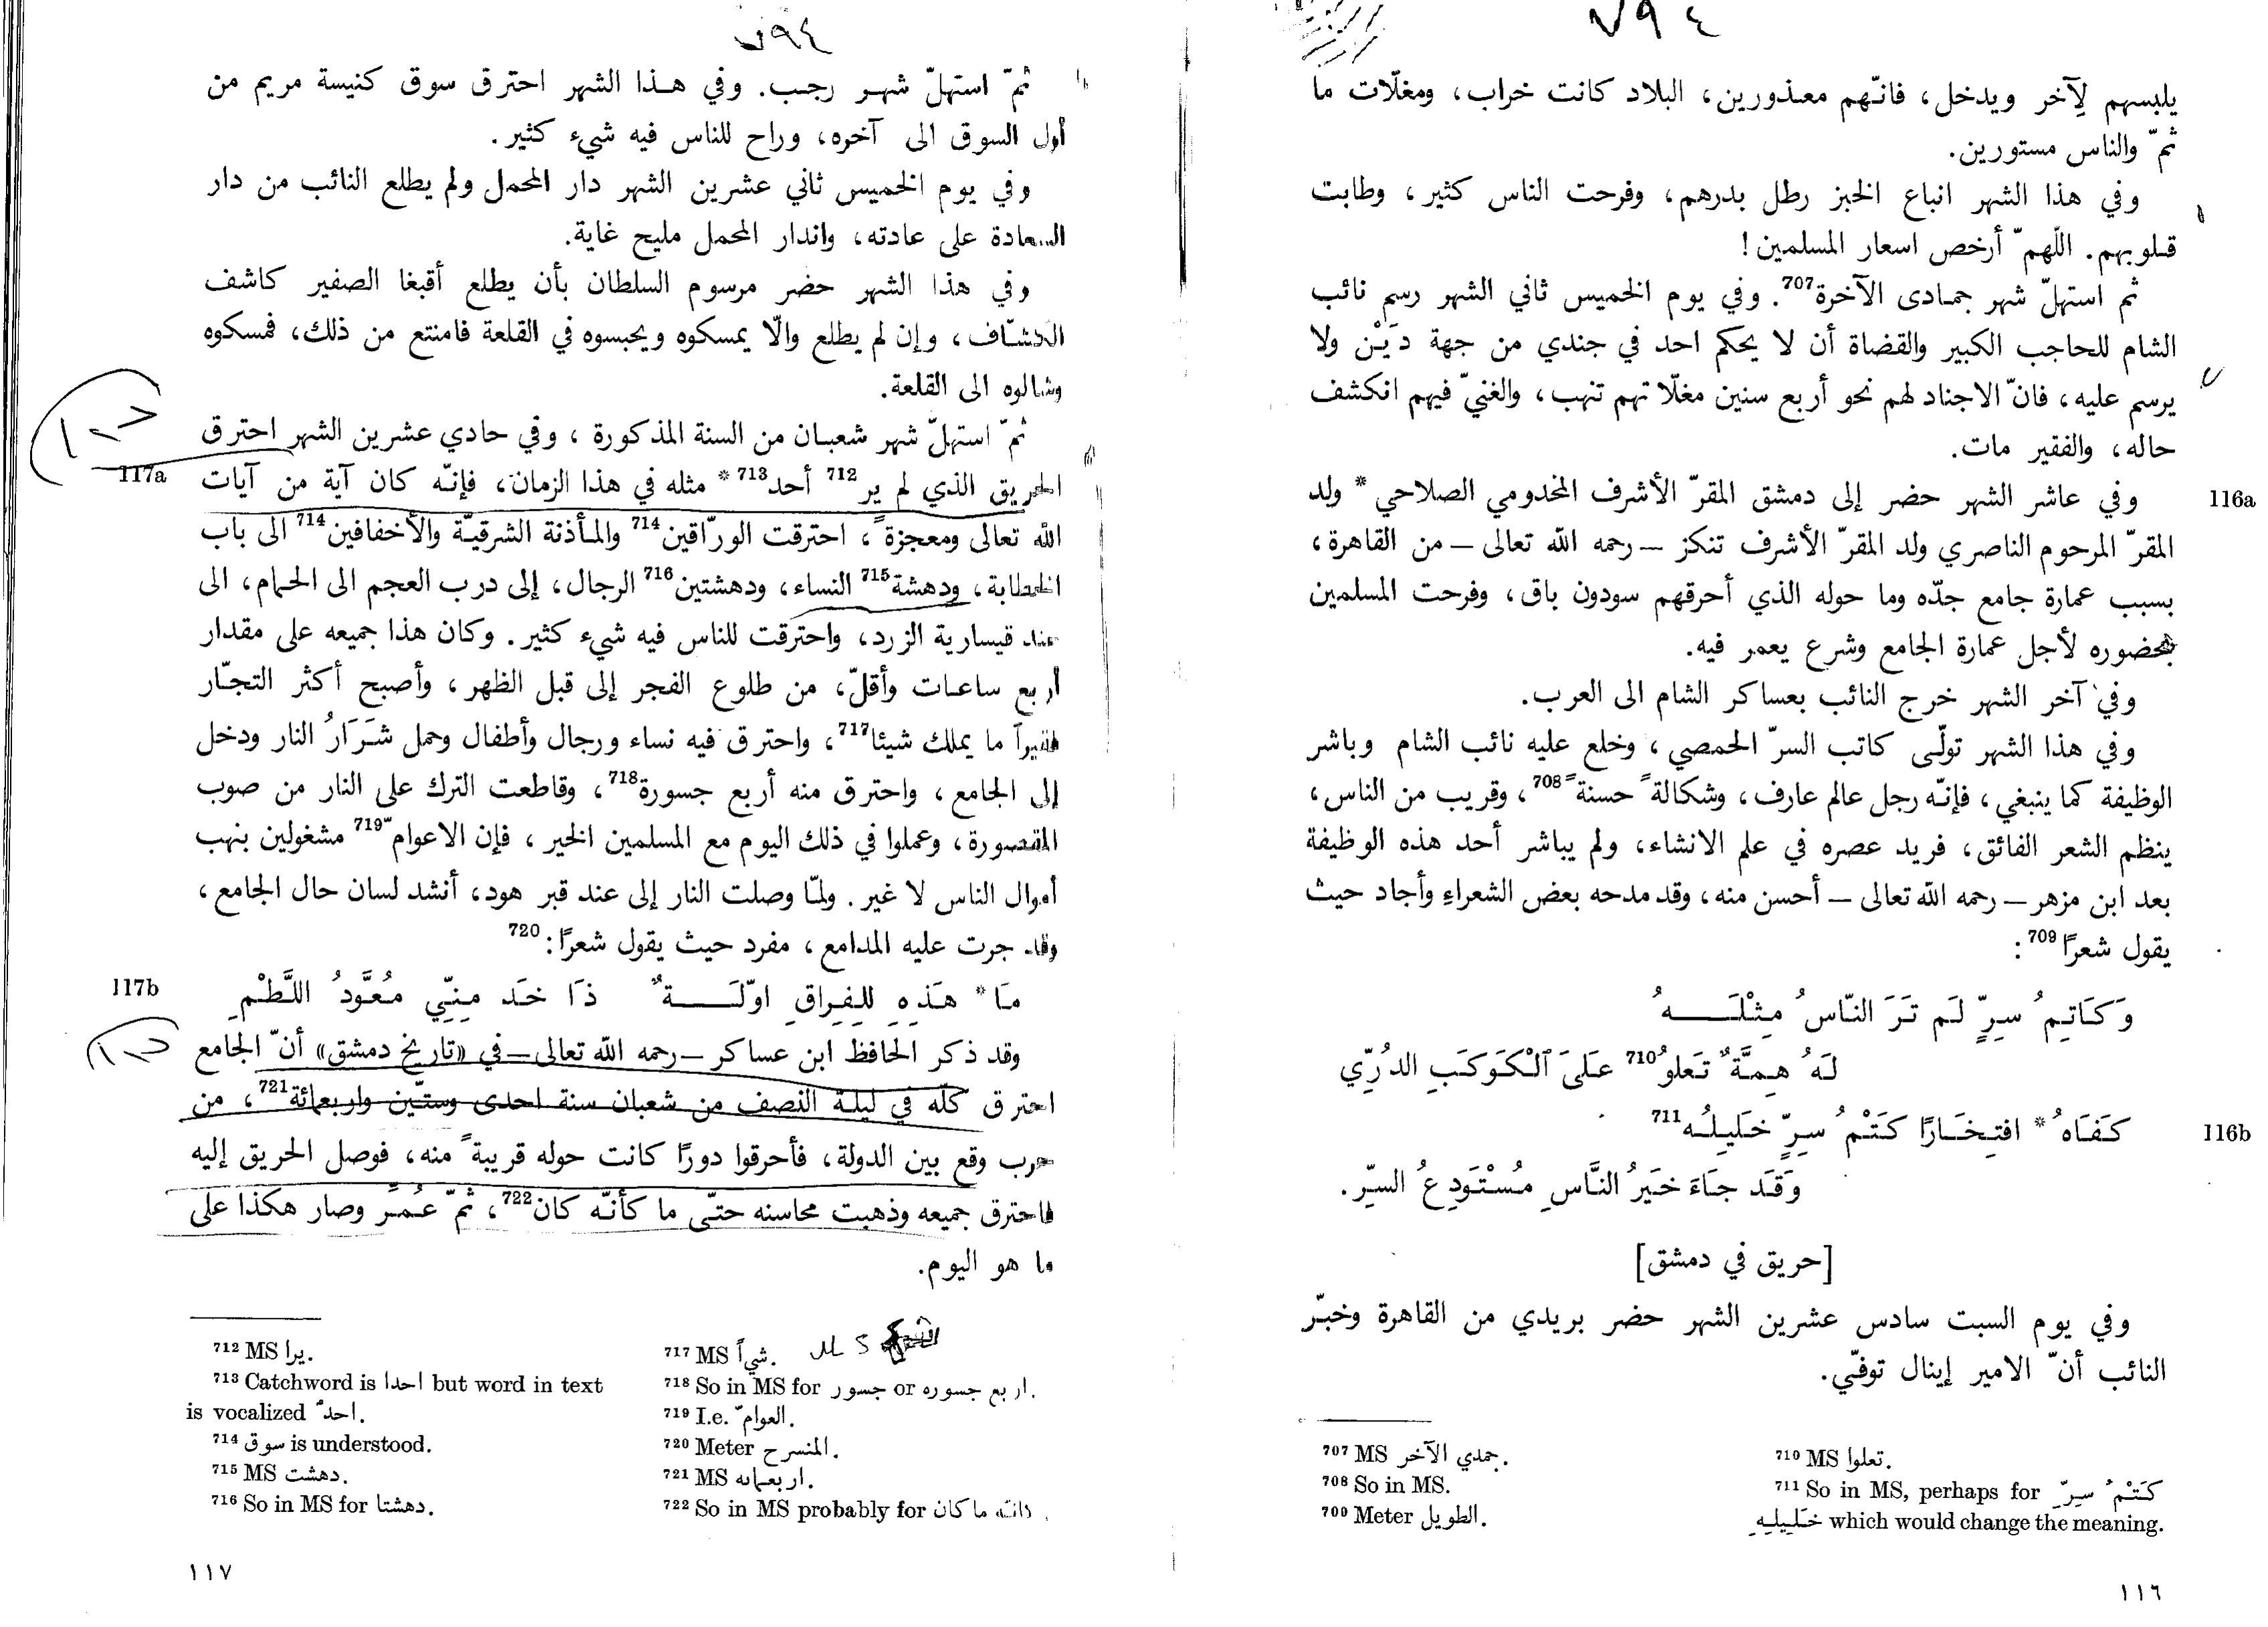 ٧٩٤
يلبسهم لِآخر ويدخل، فانّهم معذورين، البلاد كانت خراب، ومغلّات ما
ثمّ والناس مستورين.
وفي هذا الشهر انباع الخبز رطل بدرهم، وفرحت الناس كثير، وطابت
قلوبهم. اللّهمّ أرخص اسعار المسلمين!
ثم استهلّ شهر جمادى الآخرة707. وفي يوم الخميس ثاني الشهر رسم نائب
الشام للحاجب الكبير والقضاة أن لا يحكم احد في جندي من جهة دَيْن ولا
يرسم عليه، فانّ الاجناد لهم نحو أربع سنين مغلّاتهم تنهب، والغنيّ فيهم انكشف
حاله، والفقير مات.
116a وفي عاشر الشهر حضر إلى دمشق المقرّ الأشرف المخدومي الصلاحي * ولد
المقرّ المرحوم الناصري ولد المقرّ الأشرف تنكز – رحمه الله تعالى – من القاهرة،
بسبب عمارة جامع جدّه وما حوله الذي أحرقهم سودون باق، وفرحت المسلمين
بحضوره لأجل عمارة الجامع وشرع يعمر فيه.
وفي آخر الشهر خرج النائب بعساكر الشام الى العرب.
وفي هذا الشهر تولّى كاتب السرّ الحمصي، وخلع عليه نائب الشام وباشر
الوظيفة كما ينبغي، فإنّه رجل عالم عارف، وشكالةً حسنةً708، وقريب من الناس،
ينظم الشعر الفائق، فريد عصره في علم الانشاء، ولم يباشر أحد هذه الوظيفة
بعد ابن مزهر – رحمه الله تعالى – أحسن منه، وقد مدحه بعض الشعراءِ وأجاد حيث
يقول شعرًا709:
وَكَاتِمِ سِرٍّ لَم تَرَ النّاسُ مِثْلَهُ
لَهُ هِمَّةٌ تَعلوُ710 عَلَى ٱلْكَوكَبِ الدُرِّي
116b كَفَاهُ * افتِخَارًا كَتْمُ سِرٍّ خَلَيلُه711
وَقَد جَاءَ خَيَرُ النَّاسِ مُسْتَودِعُ السِّرِ.
[حريق في دمشق]
وفي يوم السبت سادس عشرين الشهر حضر بريدي من القاهرة وخبّر
النائب أنّ الامير إينال توفّي.
707 MS جمدي الآخر.
708 So in MS.
709 Meter الطويل.
710 MS تعلوا.
711 So in MS, perhaps for كَتْمُ سِرِّ
خَلِيلِهِ which would change the meaning.
١١٦
٧٩٤
ثمّ استهلّ شهر رجب. وفي هذا الشهر احترق سوق كنيسة مريم من
أول السوق الى آخره، وراح للناس فيه شيء كثير.
وفي يوم الخميس ثاني عشرين الشهر دار المحمل ولم يطلع النائب من دار
السعادة على عادته، واندار المحمل مليح غاية.
وفي هذا الشهر حضر مرسوم السلطان بأن يطلع أقبغا الصفير كاشف
الكشّاف، وإن لم يطلع والّا يمسكوه ويحبسوه في القلعة فامنتع من ذلك، فمسكوه
وشالوه الى القلعة.
ثمّ استهلّ شهر شعبان من السنة المذكورة، وفي حادي عشرين الشهر احترق
117a الحريق الذي لم ير712 أحد713 * مثله في هذا الزمان، فإنّه كان آية من آيات
الله تعالى ومعجزةً، احترقت الورّاقين714 والمأذنة الشرقيّة والأخفافين714 الى باب
الخطابة، ودهشة715 النساء، ودهشتين716 الرجال، إلى درب العجم الى الحمام، الى
عند قيسارية الزرد، واحترقت للناس فيه شيء كثير. وكان هذا جميعه على مقدار
أربع ساعات وأقلّ، من طلوع الفجر إلى قبل الظهر، وأصبح أكثر التجّار
فقيراً ما يملك شيئا717، واحترق فيه نساء ورجال وأطفال وحمل شَرَارُ النار ودخل
إلى الجامع، واحترق منه أربع جسورة718، وقاطعت الترك على النار من صوب
المقصورة، وعملوا في ذلك اليوم مع المسلمين الخير، فإن الاعوامّ719 مشغولين بنهب
أموال الناس لا غير. ولمّا وصلت النار إلى عند قبر هود، أنشد لسان حال الجامع،
وقد جرت عليه المدامع، مفرد حيث يقول شعرًا:720
117b مَا * هَذِهِ لِلفِراقِ اوّلَةٌ ذَا خَد مِنِّي مُعَّودُ اللَّطْمِ
وقد ذكر الحافظ ابن عساكر – رحمه الله تعالى – في «تاريخ دمشق» أنّ الجامع
احترق كلّه في ليلة النصف من شعبان سنة احدى وستّين واربعمائة721، من
حرب وقع بين الدولة، فأحرقوا دورًا كانت حوله قريبةً منه، فوصل الحريق إليه
فاحترق جميعه وذهبت محاسنه حتّى ما كأنّه كان722، ثمّ عُمّر وصار هكذا على
ما هو اليوم.
712 MS يرا.
713 Catchword is احدا but word in text
is vocalized احدٌ.
714 سوق is understood.
715 MS دهشت.
716 So in MS for دهشتا.
717 MS شيأً.
718 So in MS for جسور or اربع جسوره.
719 I.e. العوامّ.
720 Meter المنسرح.
721 MS اربعمايه.
722 So in MS probably for كانّه ما كان.
١١٧